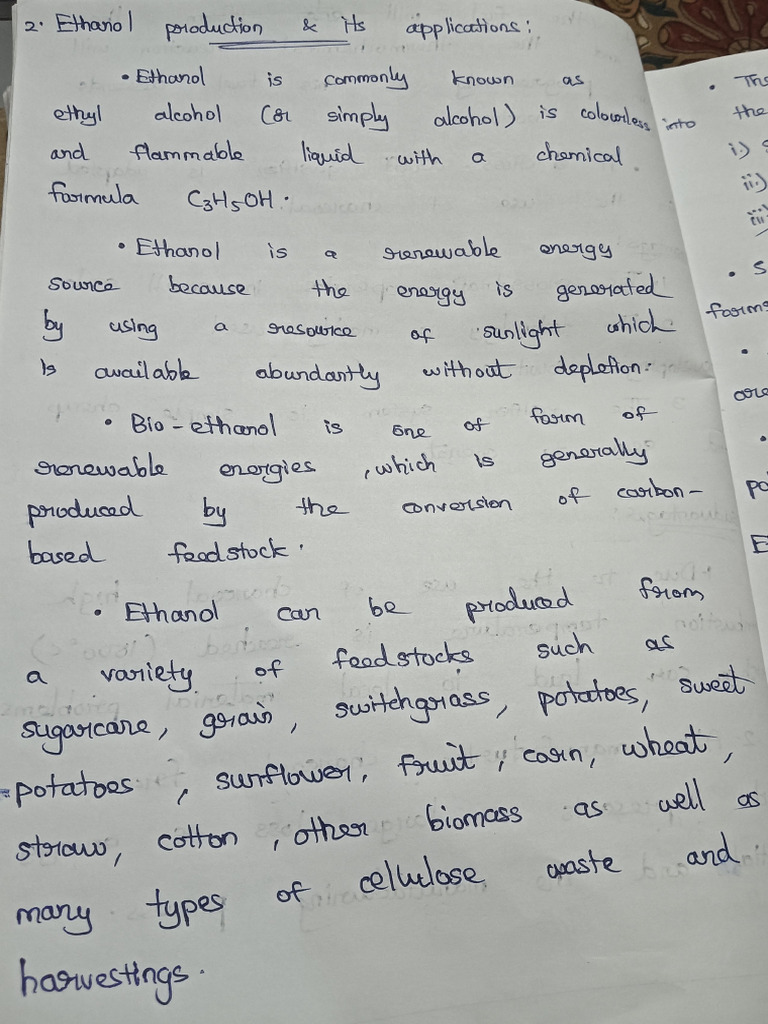 2. Ethanol production & its applications:
• Ethanol is commonly known as
ethyl alcohol (or simply alcohol) is colourless
and flammable liquid with a chemical
formula C3H5OH.
• Ethanol is a renewable energy
source because the energy is generated
by using a resource of sunlight which
is available abundantly without depletion.
• Bio-ethanol is one of form of
renewable energies, which is generally
produced by the conversion of carbon-
based feedstock.
• Ethanol can be produced from
a variety of feedstocks such as
sugarcane, grain, switchgrass, potatoes, sweet
potatoes, sunflower, fruit, corn, wheat,
straw, cotton, other biomass as well as
many types of cellulose waste and
harvestings.
into the
i.)
ii.)
iii)
• S
forms
•
are
•